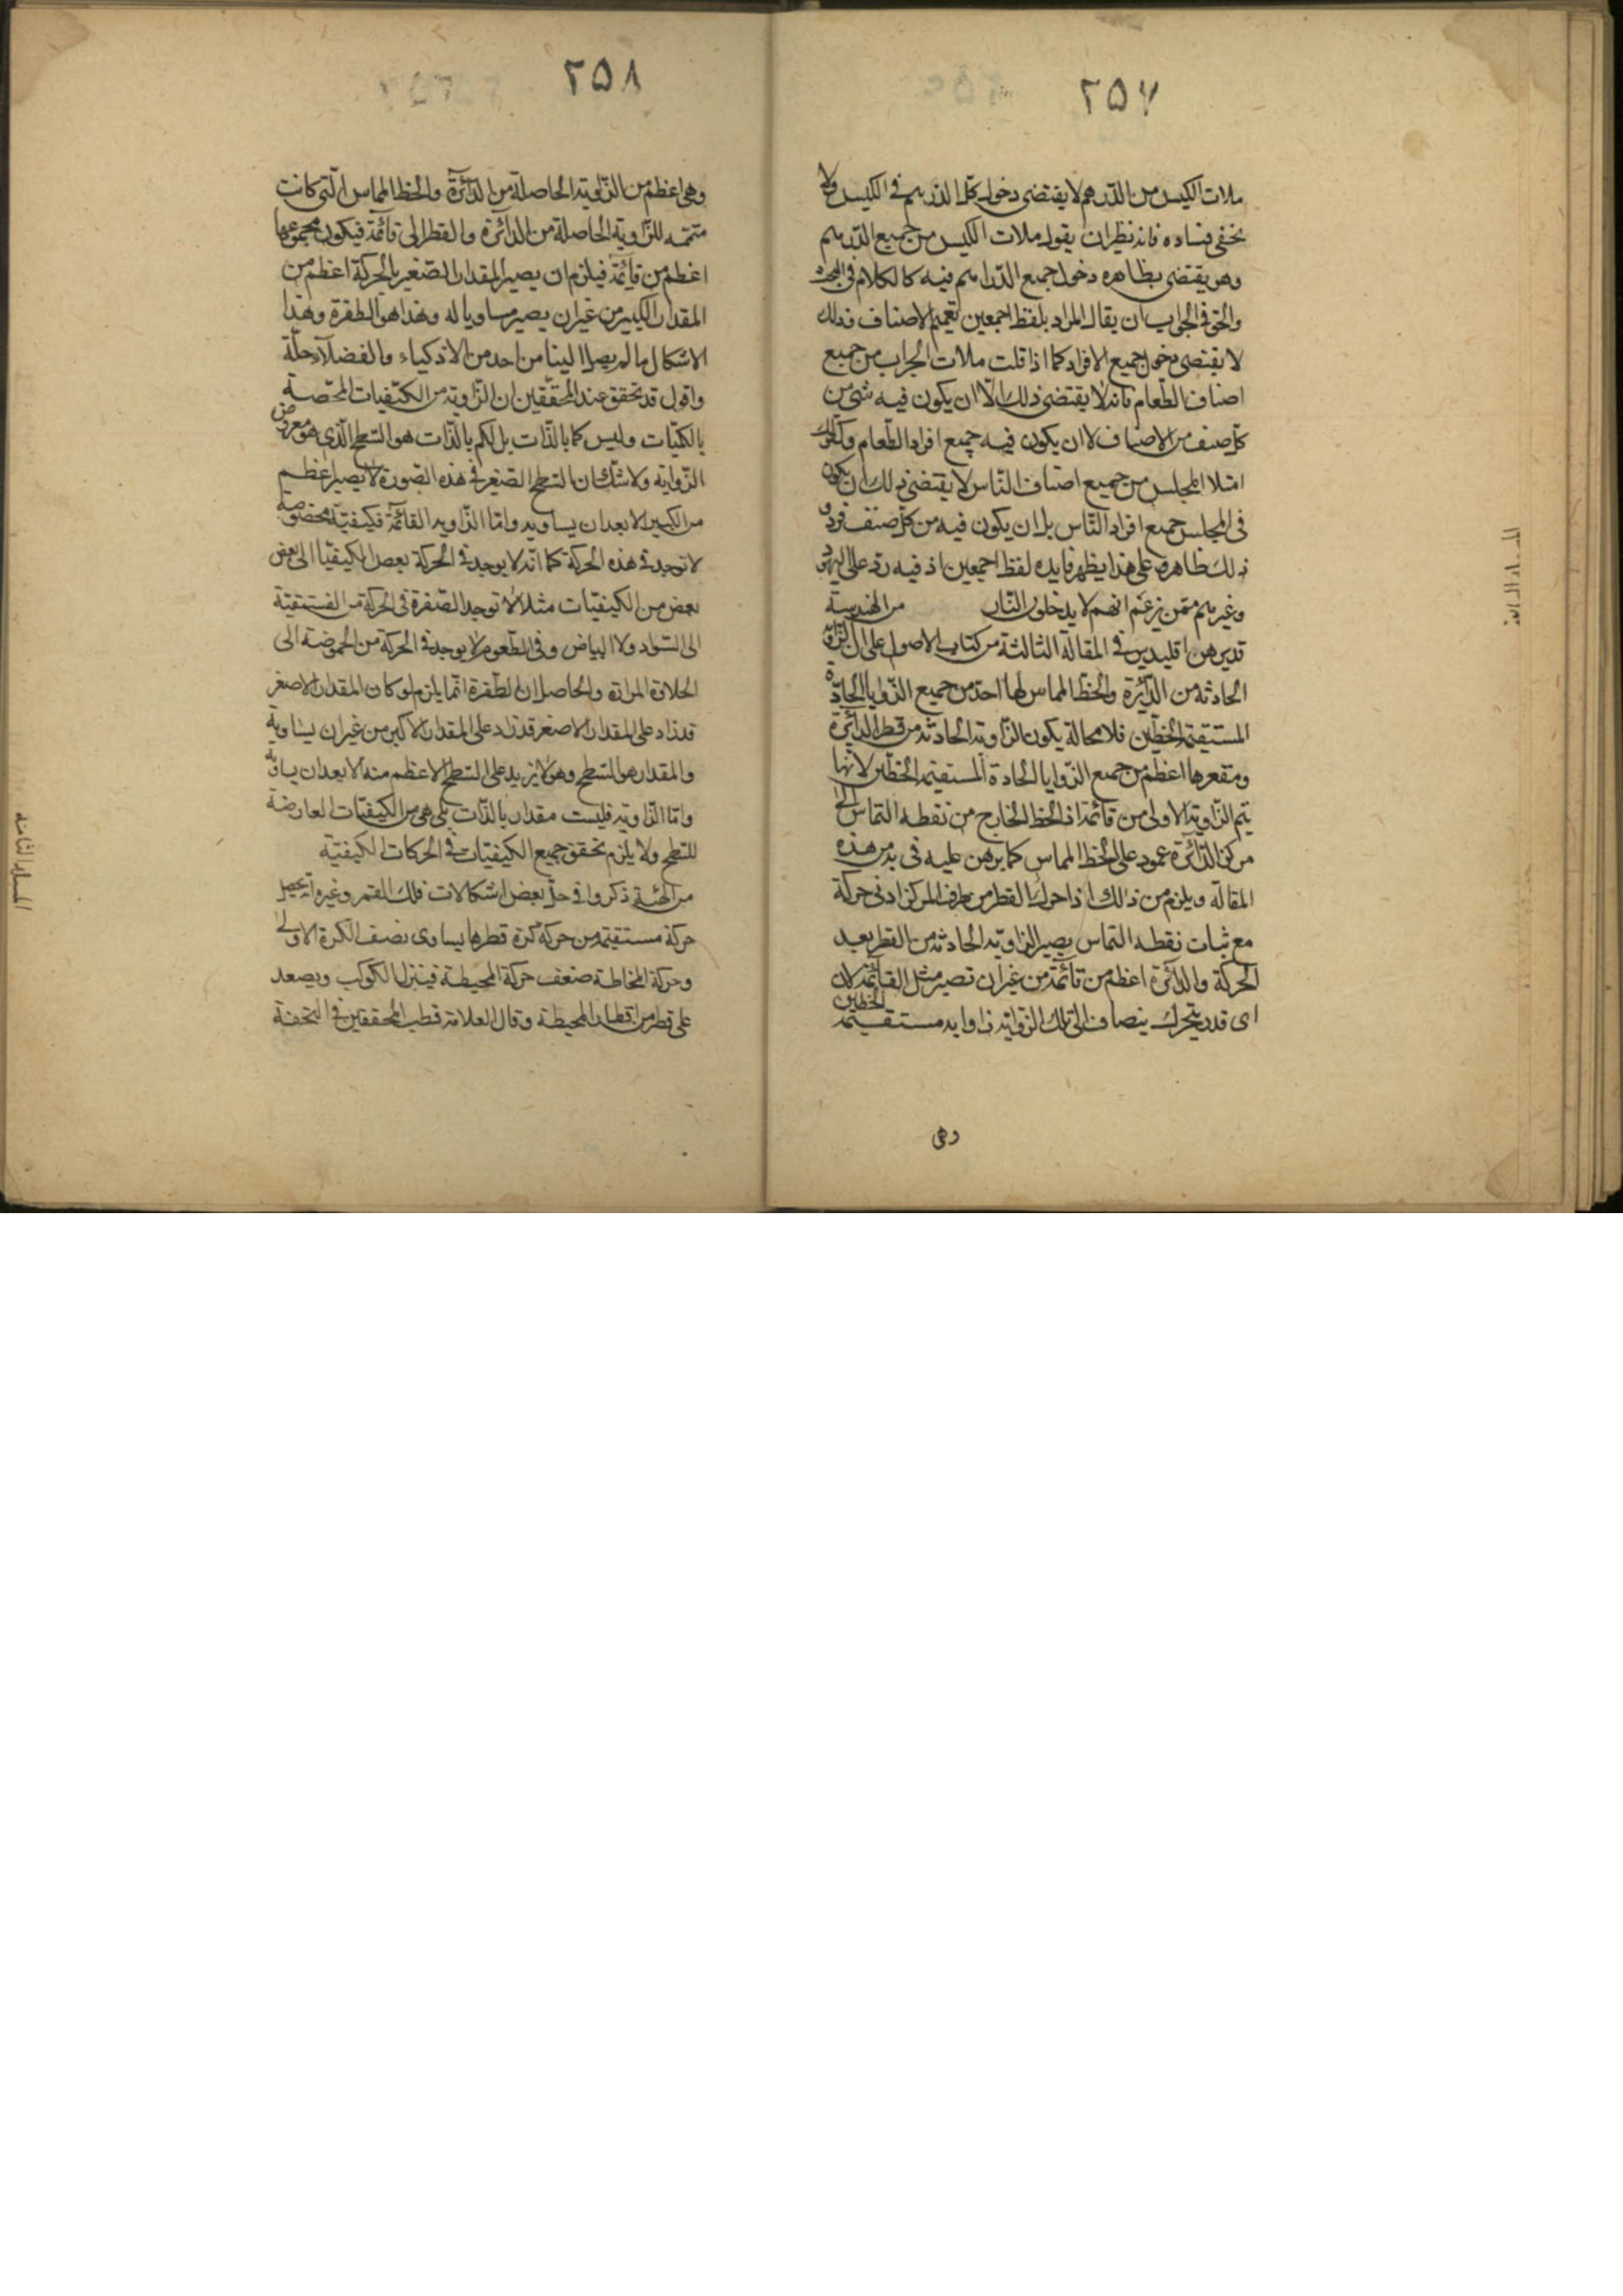 ٢٥٧
ملات الكيس من الدرهم لا يقتضى دخول كل الدرهم فى الكيس ولا
يخفى فساده فانه نظير ان يقول ملات الكيس من جميع الدرهم
وهو يقتضى بظاهره دخول جميع الدراهم فيه كالكلام فى المبحث
والحق فى الجواب ان يقال المراد بلفظ اجمعين تعميم الاصناف وذلك
لا يقتضى دخول جميع الافراد كما اذا قلت ملات الجراب من جميع
اصناف الطعام فانه لا يقتضى ذلك الّا ان يكون فيه شئ من
كل صنف من الاصناف لا ان يكون فيه جميع افراد الطعام وكقولك
امتلا المجلس من جميع اصناف الناس لا يقتضى ذلك ان يكون
فى المجلس جميع افراد الناس بل ان يكون فيه من كل صنف فرد و
ذلك ظاهر وعلى هذا يظهر فايده لفظ اجمعين اذ فيه رد على اليهود
وغيرهم ممن يزعم انهم لا يدخلون النار من الهندسة
قد برهن اقليدس فى المقالة الثالثة من كتاب الاصول على ان الزاوية
الحادثه من الدائرة والخط المماس لها احد من جميع الزوايا الحادة
المستقيمة الخطين فلا محالة يكون الزاوية الحادثه من قطر الدائرة
ومقعرها اعظم من جميع الزوايا الحادة المستقيمه الخطين لانها
يتم الزاوية الاولى من قائمة اذ الخط الخارج من نقطه التماس الى
مركز الدائرة عمود على الخط المماس كما برهن عليه فى يد من هذه
المقالة ويلزم من ذلك اذا حرك القطر من طرف المركز ادنى حركة
مع ثبات نقطه التماس يصير الزاوية الحادثه من القطر بعد
الحركة والدائرة اعظم من قائمة من غير ان تصير مثل القائمة لان
اى قدر يتحرك ينضاف الى تلك الزاوية زاوية مستقيمة الخطين
وهى
٢٥٨
وهى اعظم من الزاوية الحاصلة من الدائرة والخط المماس التى كانت
متممه للزاوية الحاصلة من الدائرة والقطر الى قائمة فيكون مجموعها
اعظم من قائمة فيلزم ان يصير المقدار الصغير بالحركة اعظم من
المقدار الكبير من غير ان يصير مساويا له وهذا هو الطفرة وهذا
الاشكال مما لم يصل الينا من احد من الاذكياء والفضلاء حلّه
واقول قد تحقق عند المحققين ان الزاوية من الكيفيات المختصة
بالكميات وليس كما بالذات بل الكم بالذات هو السطح الذى هو معروض
الزواية ولا شك ان السطح الصغير فى هذه الصورة لا يصير اعظم
من الكبير الا بعد ان يساويه واما الزاوية القائمة فكيفية مخصوصة
لا توجد فى هذه الحركة كما انه لا يوجد فى الحركة بعض الكيفيات الى بعض
بعض من الكيفيات مثلا لا توجد الصفرة فى الحركة من الفستقية
الى السواد ولا البياض وفى الطعوم لا يوجد فى الحركة من الحموضة الى
الحلاوة المرارة والحاصل ان الطفرة انما يلزم لو كان المقدار الاصغر
قد زاد على المقدار الاصغر قد زاد على المقدار الاكبر من غير ان يساويه
والمقدار هو السطح وهو لا يزيد على السطح الاعظم منه الا بعد ان يساويه
واما الزاوية فليست مقدار بالذات بل هى من الكيفيات العارضة
للسطح ولا يلزم تحقق جميع الكيفيات فى الحركات الكيفية
من الهيئة ذكروا فى حل بعض اشكالات فلك القمر وغيره انه يحصل
حركة مستقيمة من حركة كرة قطرها يساوى نصف الكرة الاولى
وحركة المحاطة ضعف حركة المحيطة فينزل الكوكب ويصعد
على قطر من اقطار المحيطة وقال العلامة قطب المحققين فى التحفة